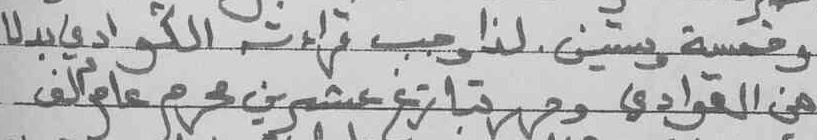 وخمسة وستين. لذا وجب قراءته الڭوادي بدلا
من القوادي وحرر بتاريخ عشرين محرم عام ألف